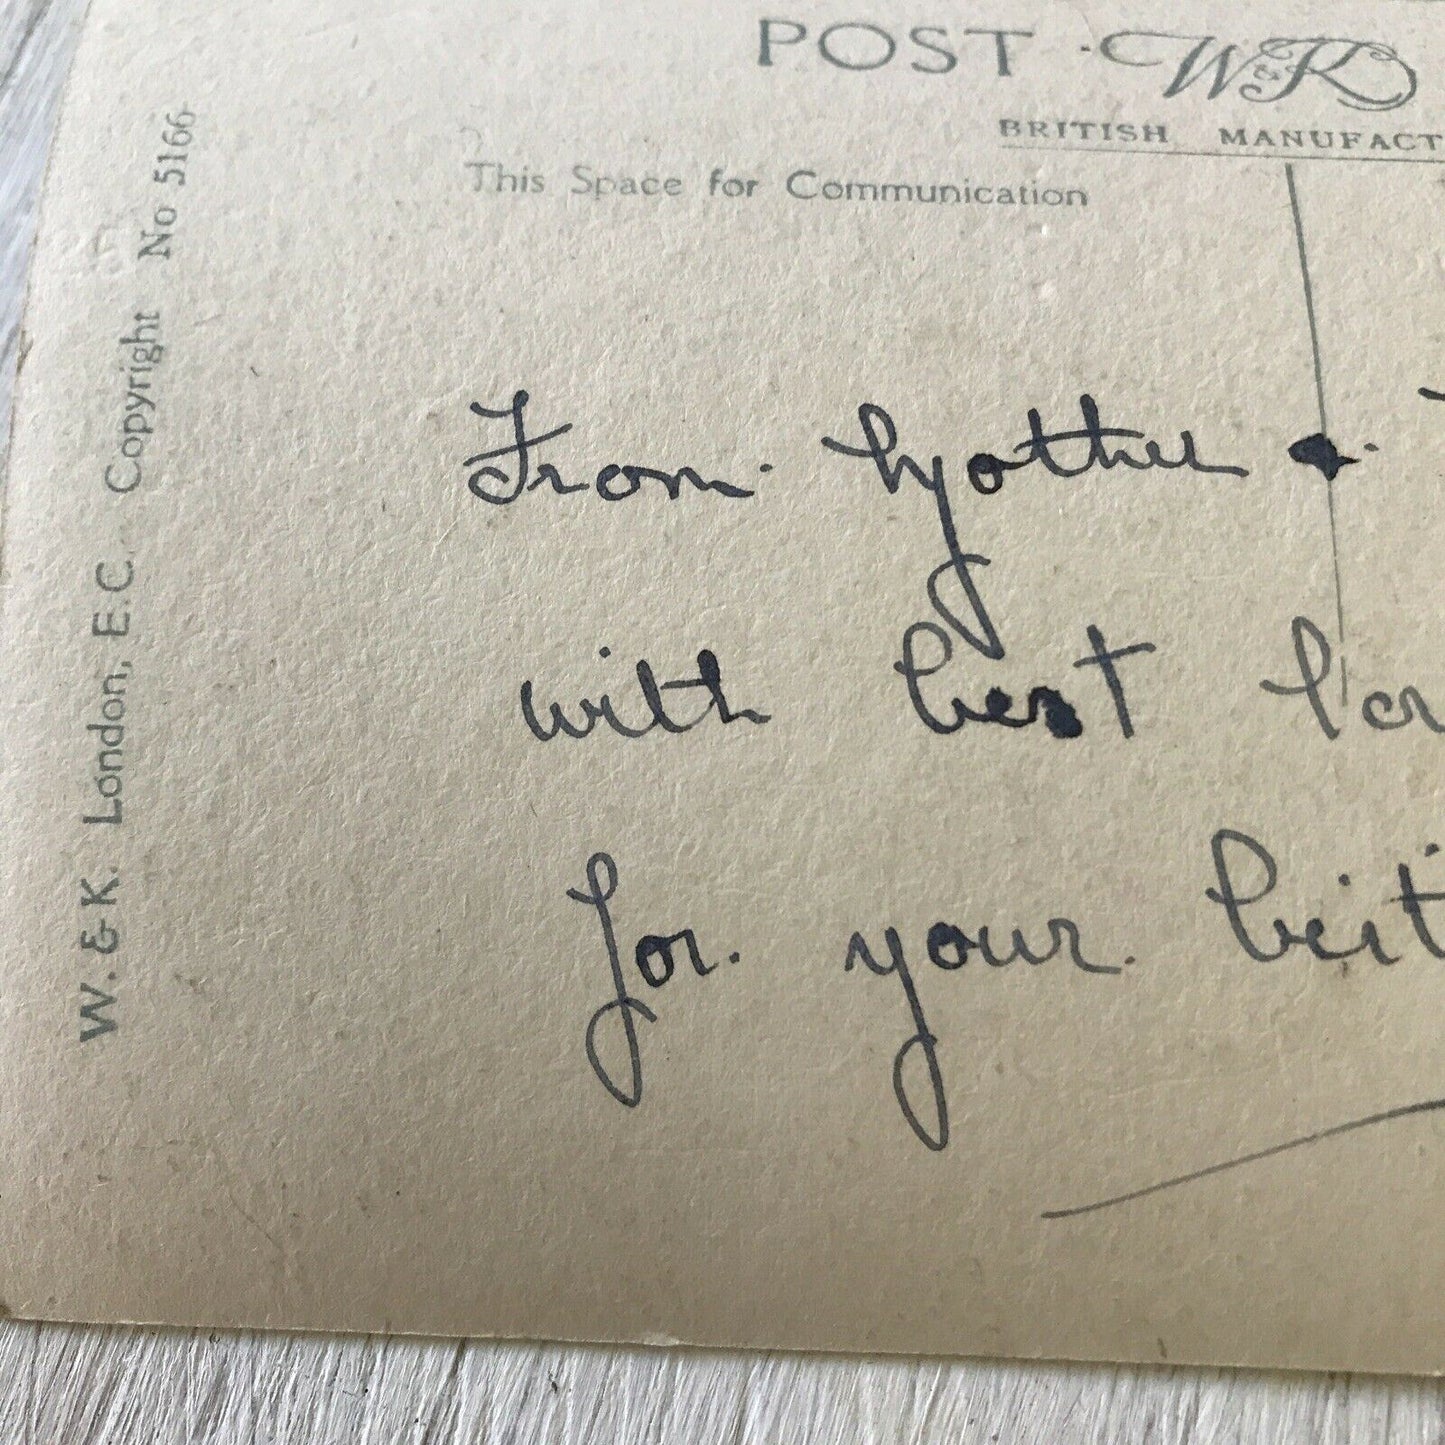 POST W&K
BRITISH MANUFACT
This Space for Communication
W. & K. London, E.C. Copyright No 5166
From Mother &
with best
for your